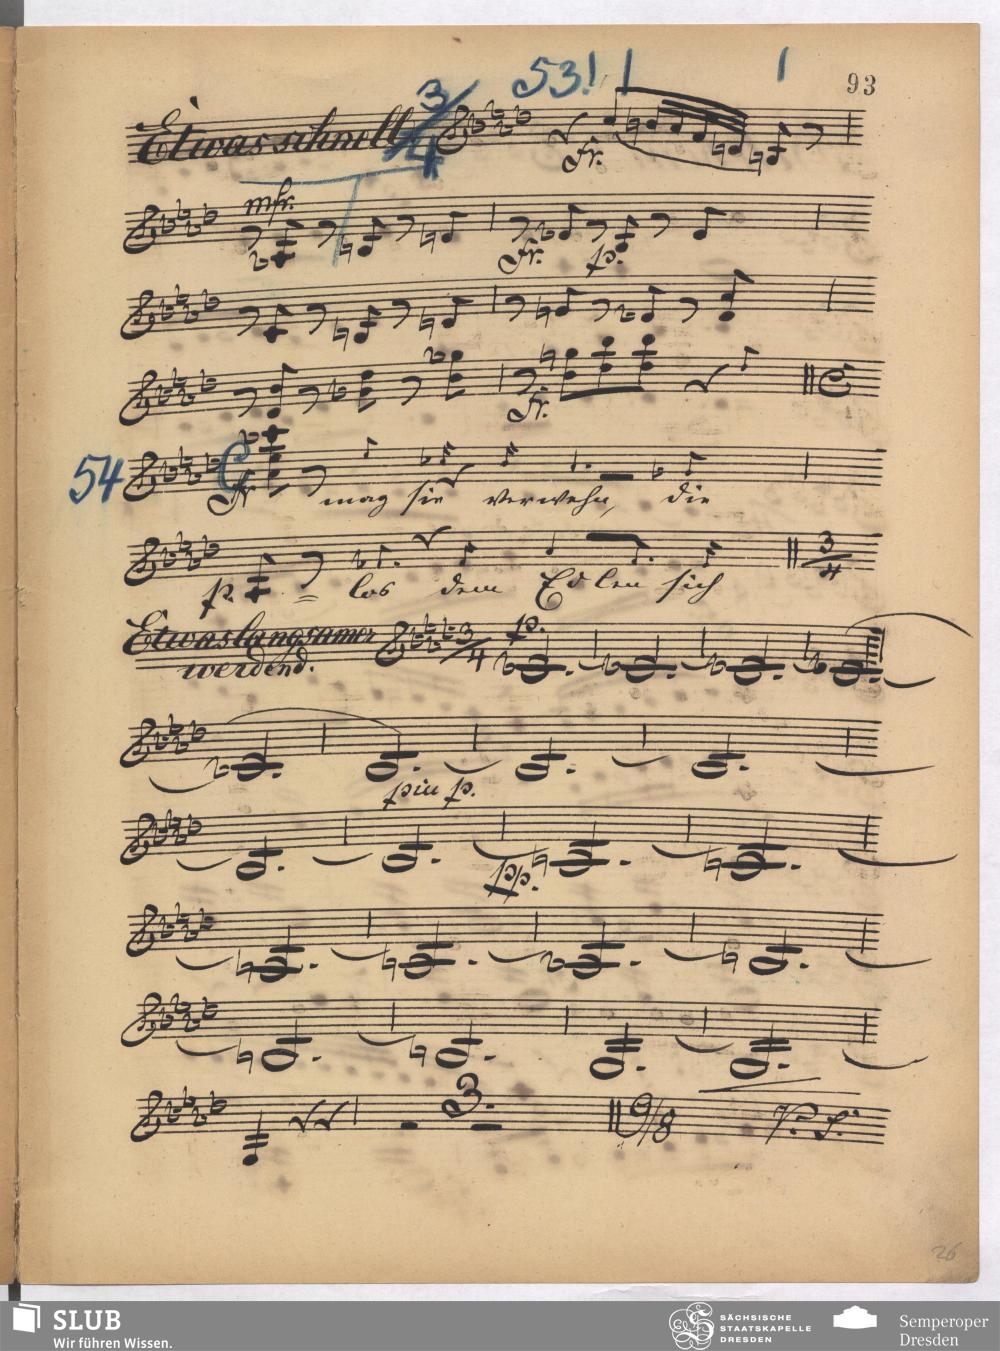 53! | |
93
Etwas schnell 3/4
Fr.
mfr.
Fr. p.
Fr.
54
Fr mag sie verwehn, die
p. = los dem Edlen sich
Etwas langsamer 3/4 p.
werdend.
piu p.
pp.
3. 9/8 V. S.
26
SLUB
Wir führen Wissen.
SÄCHSISCHE
STAATSKAPELLE
DRESDEN
Semperoper
Dresden